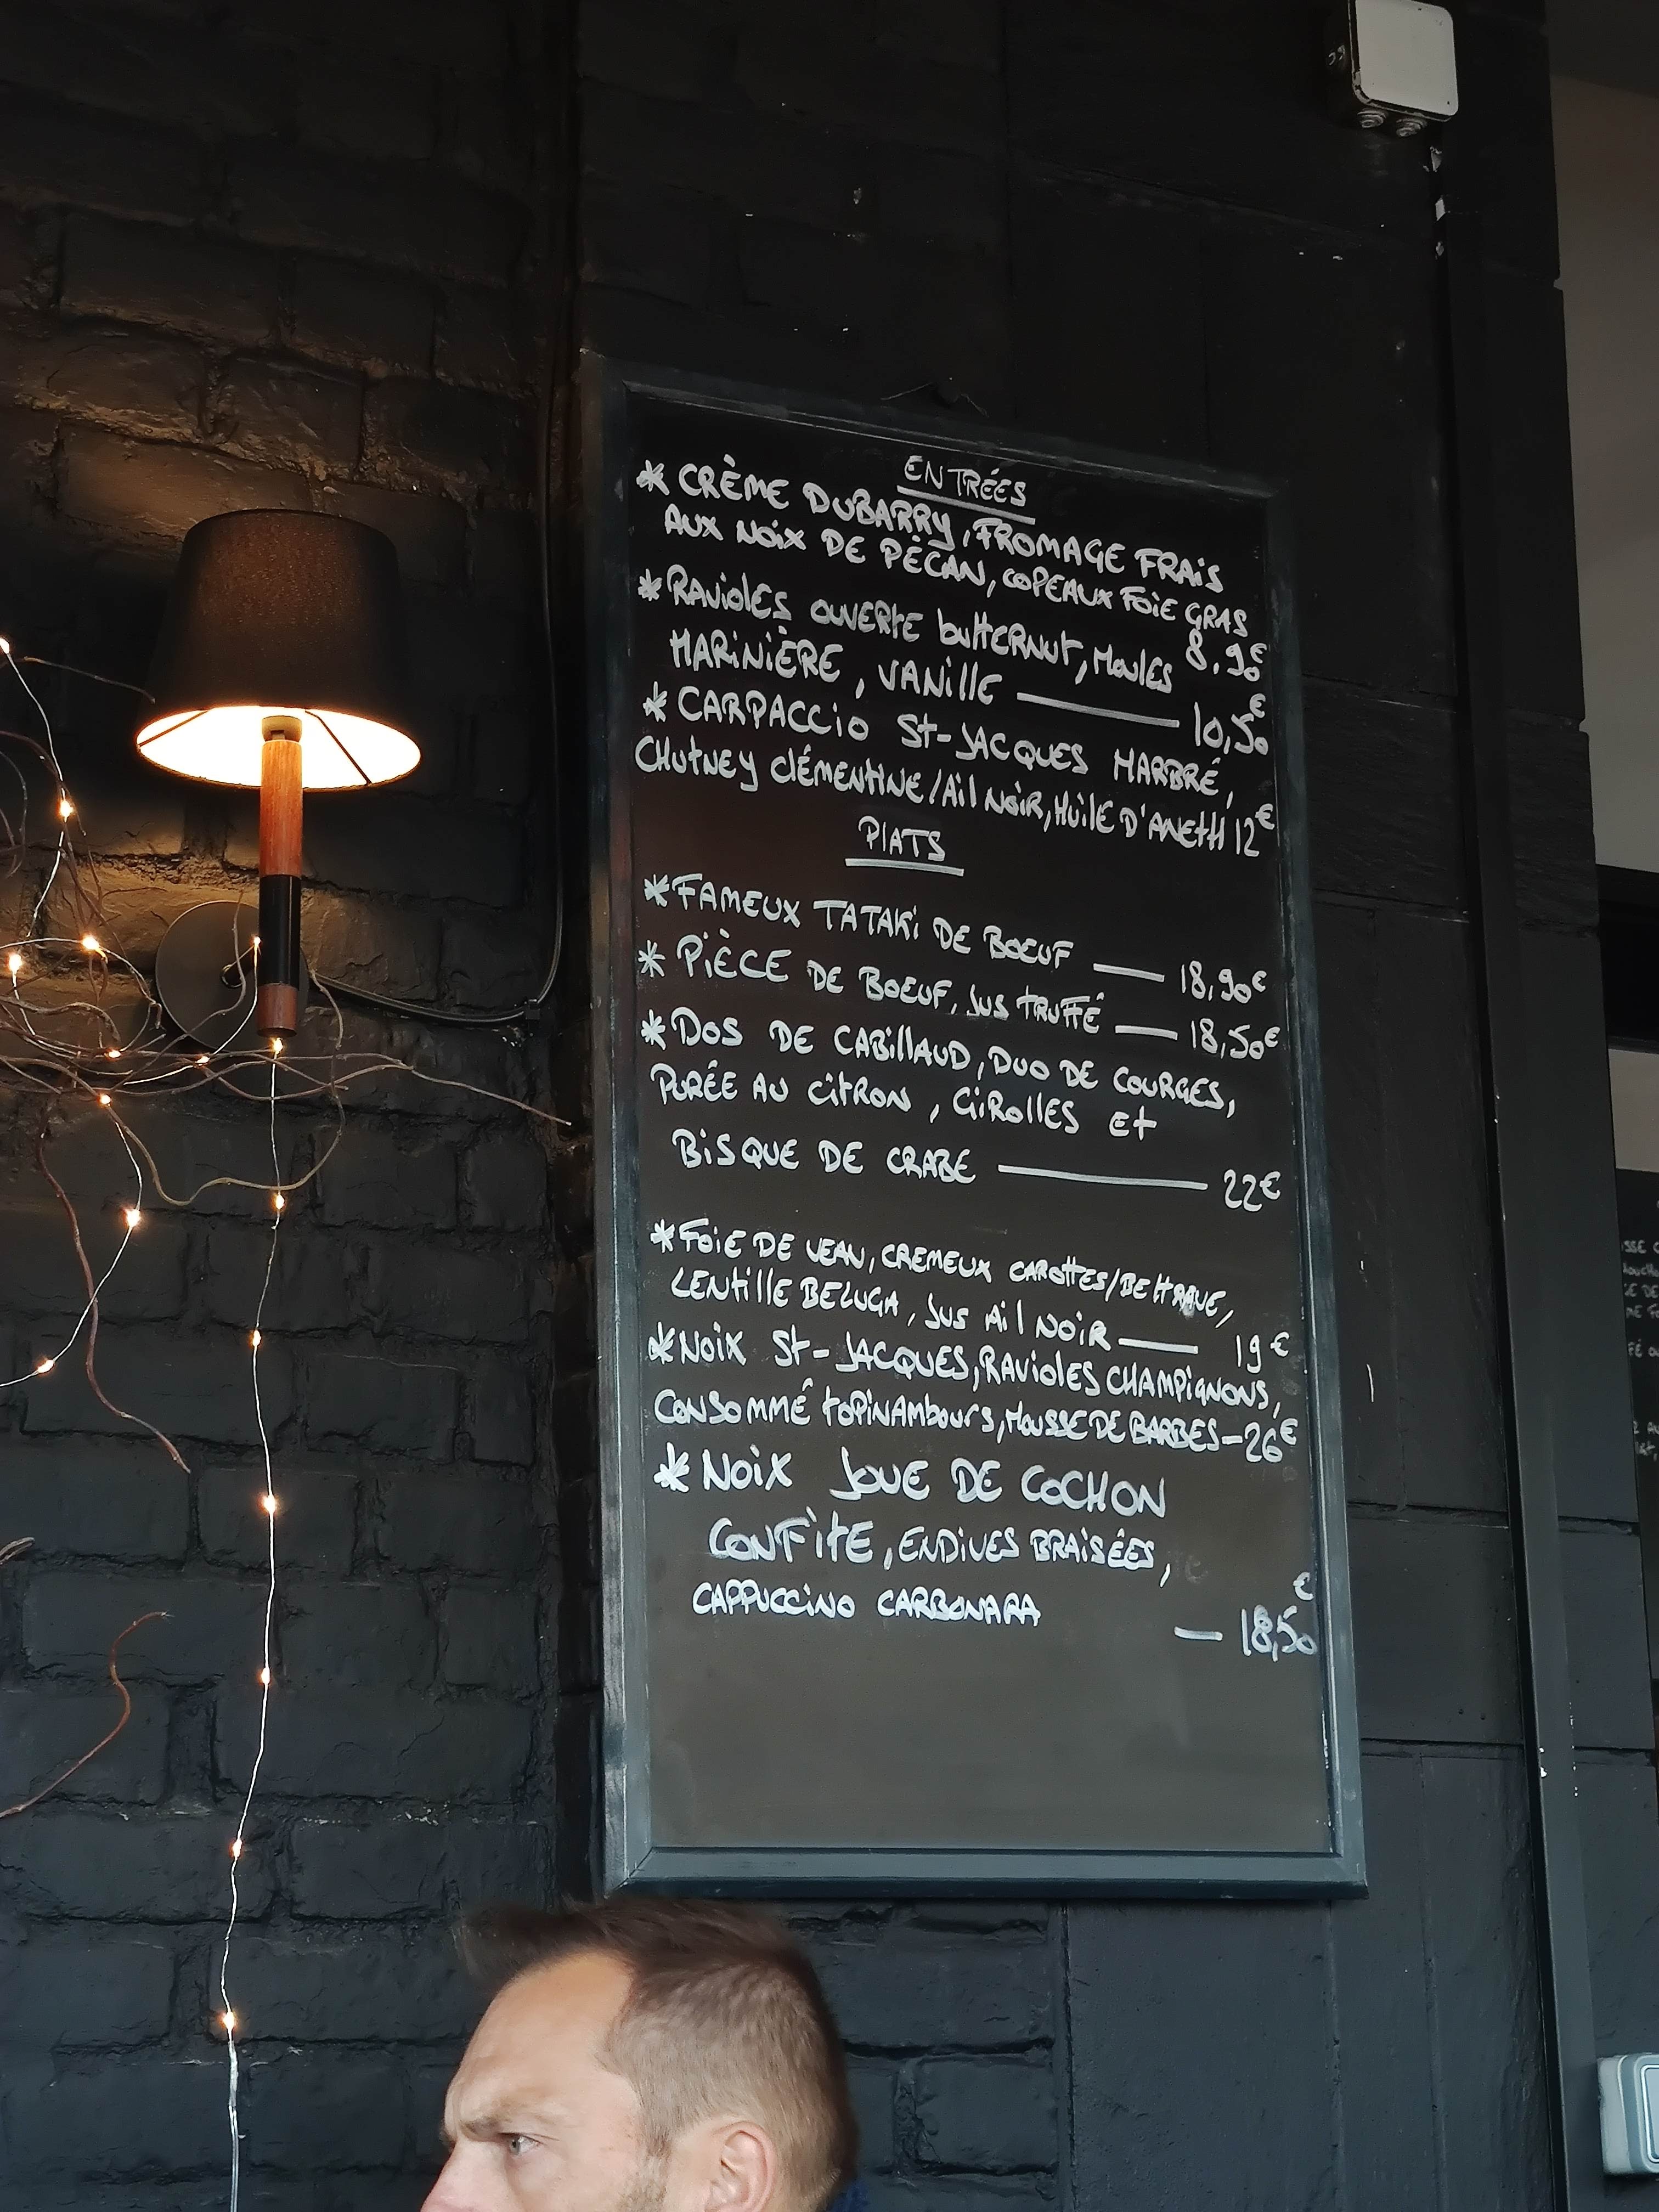 ENTRÉES
* CRÈME DUBARRY, FROMAGE FRAIS
AUX NOIX DE PÈCAN, COPEAUX FOIE GRAS
8.90€
* RAVIOLES OUVERTE BUTTERNUT, MOULES
MARINIÈRE, VANILLE — 10,50€
* CARPACCIO ST-JACQUES MARBRÉ,
CHUTNEY CLÉMENTINE/AIL NOIR, HUILE D'ANETH 12€
PLATS
* FAMEUX TATAKI DE BOEUF — 18,90€
* PIÈCE DE BOEUF, JUS TRUFFÉ — 18,50€
* DOS DE CABILLAUD, DUO DE COURGES,
PURÉE AU CITRON, GIROLLES ET
BISQUE DE CRABE — 22€
* FOIE DE VEAU, CREMEUX CAROTTES/BETTRAVE,
LENTILLE BELUGA, JUS AIL NOIR — 19€
* NOIX ST-JACQUES, RAVIOLES CHAMPIGNONS,
CONSOMMÉ TOPINAMBOURS, MOUSSE DE BARBES - 26€
* NOIX JOUE DE COCHON
CONFITE, ENDIVES BRAISÉES,
CAPPUCCINO CARBONARA
— 18,50€